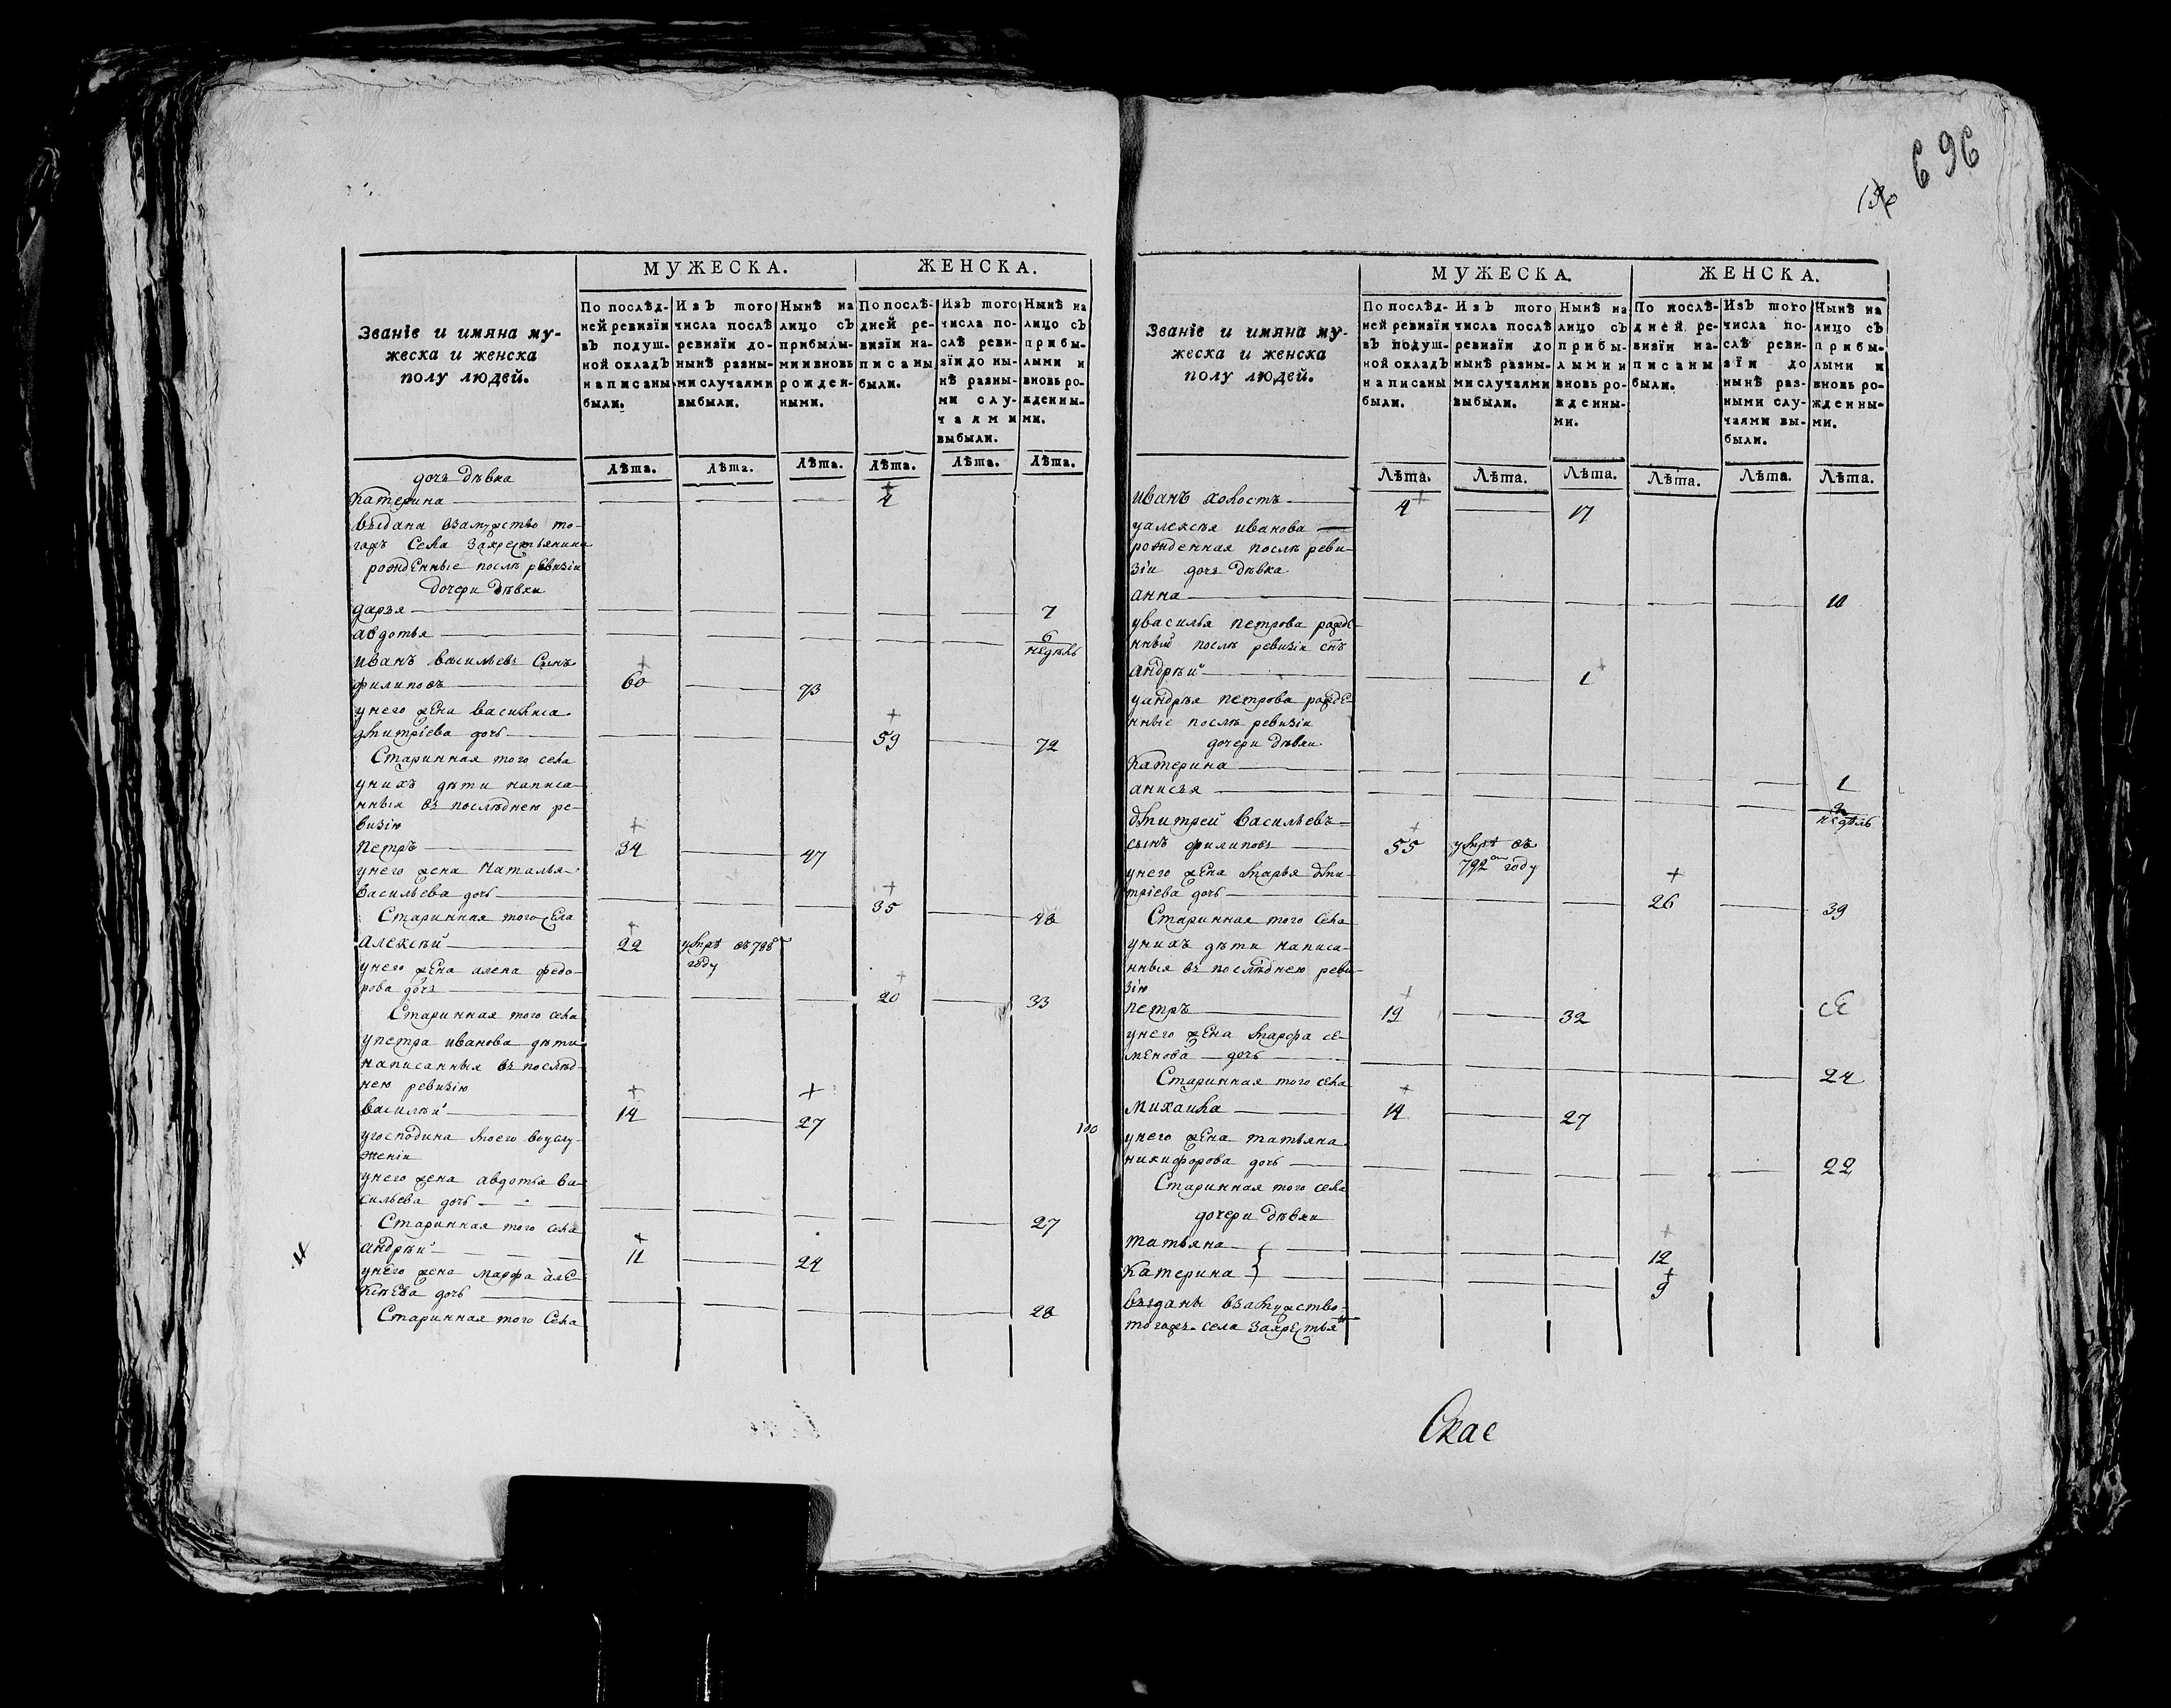 696
МУЖЕСКА. ЖЕНСКА.
Званїе и имяна му-
жеска и женска
полу людей.
По послѣд-
ней ревизїи
въ подуш-
ной окладъ
написаны
были.
Изъ того
числа послѣ
ревизїи до-
нынѣ разны-
ми случаями
выбыли.
Нынѣ на
лицо съ
прибылы-
ми и вновь
рожден-
ными.
По послѣ-
дней ре-
визїи на-
писаны
были.
Изъ того
числа по-
слѣ реви-
зїи до ны-
нѣ разны-
ми слу-
чаями
выбыли.
Нынѣ на
лицо съ
прибы-
лыми и
вновь ро-
жденны-
ми.
Лѣта. Лѣта. Лѣта. Лѣта. Лѣта. Лѣта.
дочь дѣвка
Катерина 4
выдана взамужство то-
гожъ села закрестьянина
рожденные послѣ ревизіи
дочери дѣвки
дарья 7
авдотья 6
недѣль
иванъ васильевъ сынъ
филиповъ 60 73
унего жена василиса
дмитріева дочь 59 72
Старинная того села
унихъ дѣти написа-
нныя въ послѣднею ре-
визію
петръ 34 47
унего жена наталья
васильева дочь 35 48
Старинная того села
алексѣй 22 умре въ 788м
году
унего жена алена федо-
рова дочь 20 33
Старинная того села
упетра иванова дѣти
написанныя въ послѣд-
нею ревизію
василѣй 14 27
угосподина моего воуслу-
женіи
унего жена авдотья ва-
сильева дочь 27
Старинная того села
андрѣй 11 24
унего жена марфа але-
ксѣева дочь 28
Старинная того села
100
МУЖЕСКА. ЖЕНСКА.
Званїе и имяна му-
жеска и женска
полу людей.
По послѣд-
ней ревизїи
въ подуш-
ной окладъ
написаны
были.
Изъ того
числа послѣ
ревизїи до
нынѣ разны-
ми случаями
выбыли.
Нынѣ на
лицо съ
прибы-
лыми и
вновь ро-
жденны-
ми.
По послѣ-
дней ре-
визїи на-
писаны
были.
Изъ того
числа по-
слѣ реви-
зїи до
нынѣ раз-
ными слу-
чаями вы-
были.
Нынѣ на
лицо съ
прибы-
лыми и
вновь ро-
жденны-
ми.
Лѣта. Лѣта. Лѣта. Лѣта. Лѣта. Лѣта.
иванъ холостъ 4 17
уалексѣя иванова
рожденная послѣ реви-
зіи дочь дѣвка
анна 10
увасилья петрова рожде-
нный послѣ ревизіи снъ
андрѣй 1
уандрѣя петрова рожде-
нные послѣ ревизіи
дочери дѣвки
Катерина 1
анисья
недѣль
дмитрей васильевъ
сынъ филиповъ 55 умре въ
792м году
унего жена марья дми-
тріева дочь 26 39
Старинная того села
унихъ дѣти написа-
нныя въ послѣднею реви-
зію
петръ 19 32
унего жена марфа се-
менова дочь 24
Старинная того села
михаила 14 27
унего жена татьяна
никифорова дочь 22
Старинная того села
дочери дѣвки
татьяна 12
Катерина 9
выданы взамужство
тогожъ села закрестья
Скас